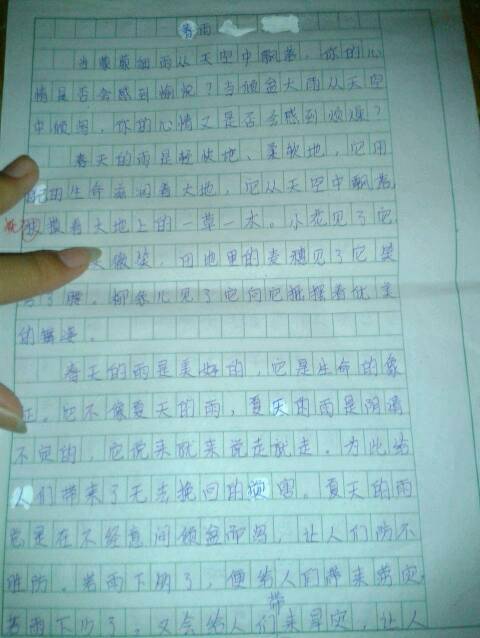 春雨
当蒙蒙细雨从天空中飘落,你的心
情是否会感到愉悦?当倾盆大雨从天空
中倾泻,你的心情又是否会感到烦燥?
春天的雨是轻快地、柔软地,它用
自己的生命滋润着大地,它从天空中飘落,
散着大地上的一草一木。小花见了它
微笑,田地里的麦穗见了它笑
了腰,柳条儿见了它向它摇摆着优美
的舞姿。
春天的雨是美好的,它是生命的象
征。它不像夏天的雨,夏天的雨是阴晴
不定的,它说来就来说走就走。为此给
人们带来了无法挽回的损害。夏天的雨
总是在不经意间倾盆而泻,让人们防不
胜防。若雨下的了,便给人们带来涝灾,
若雨下少了。又会给人们带来旱灾,让人